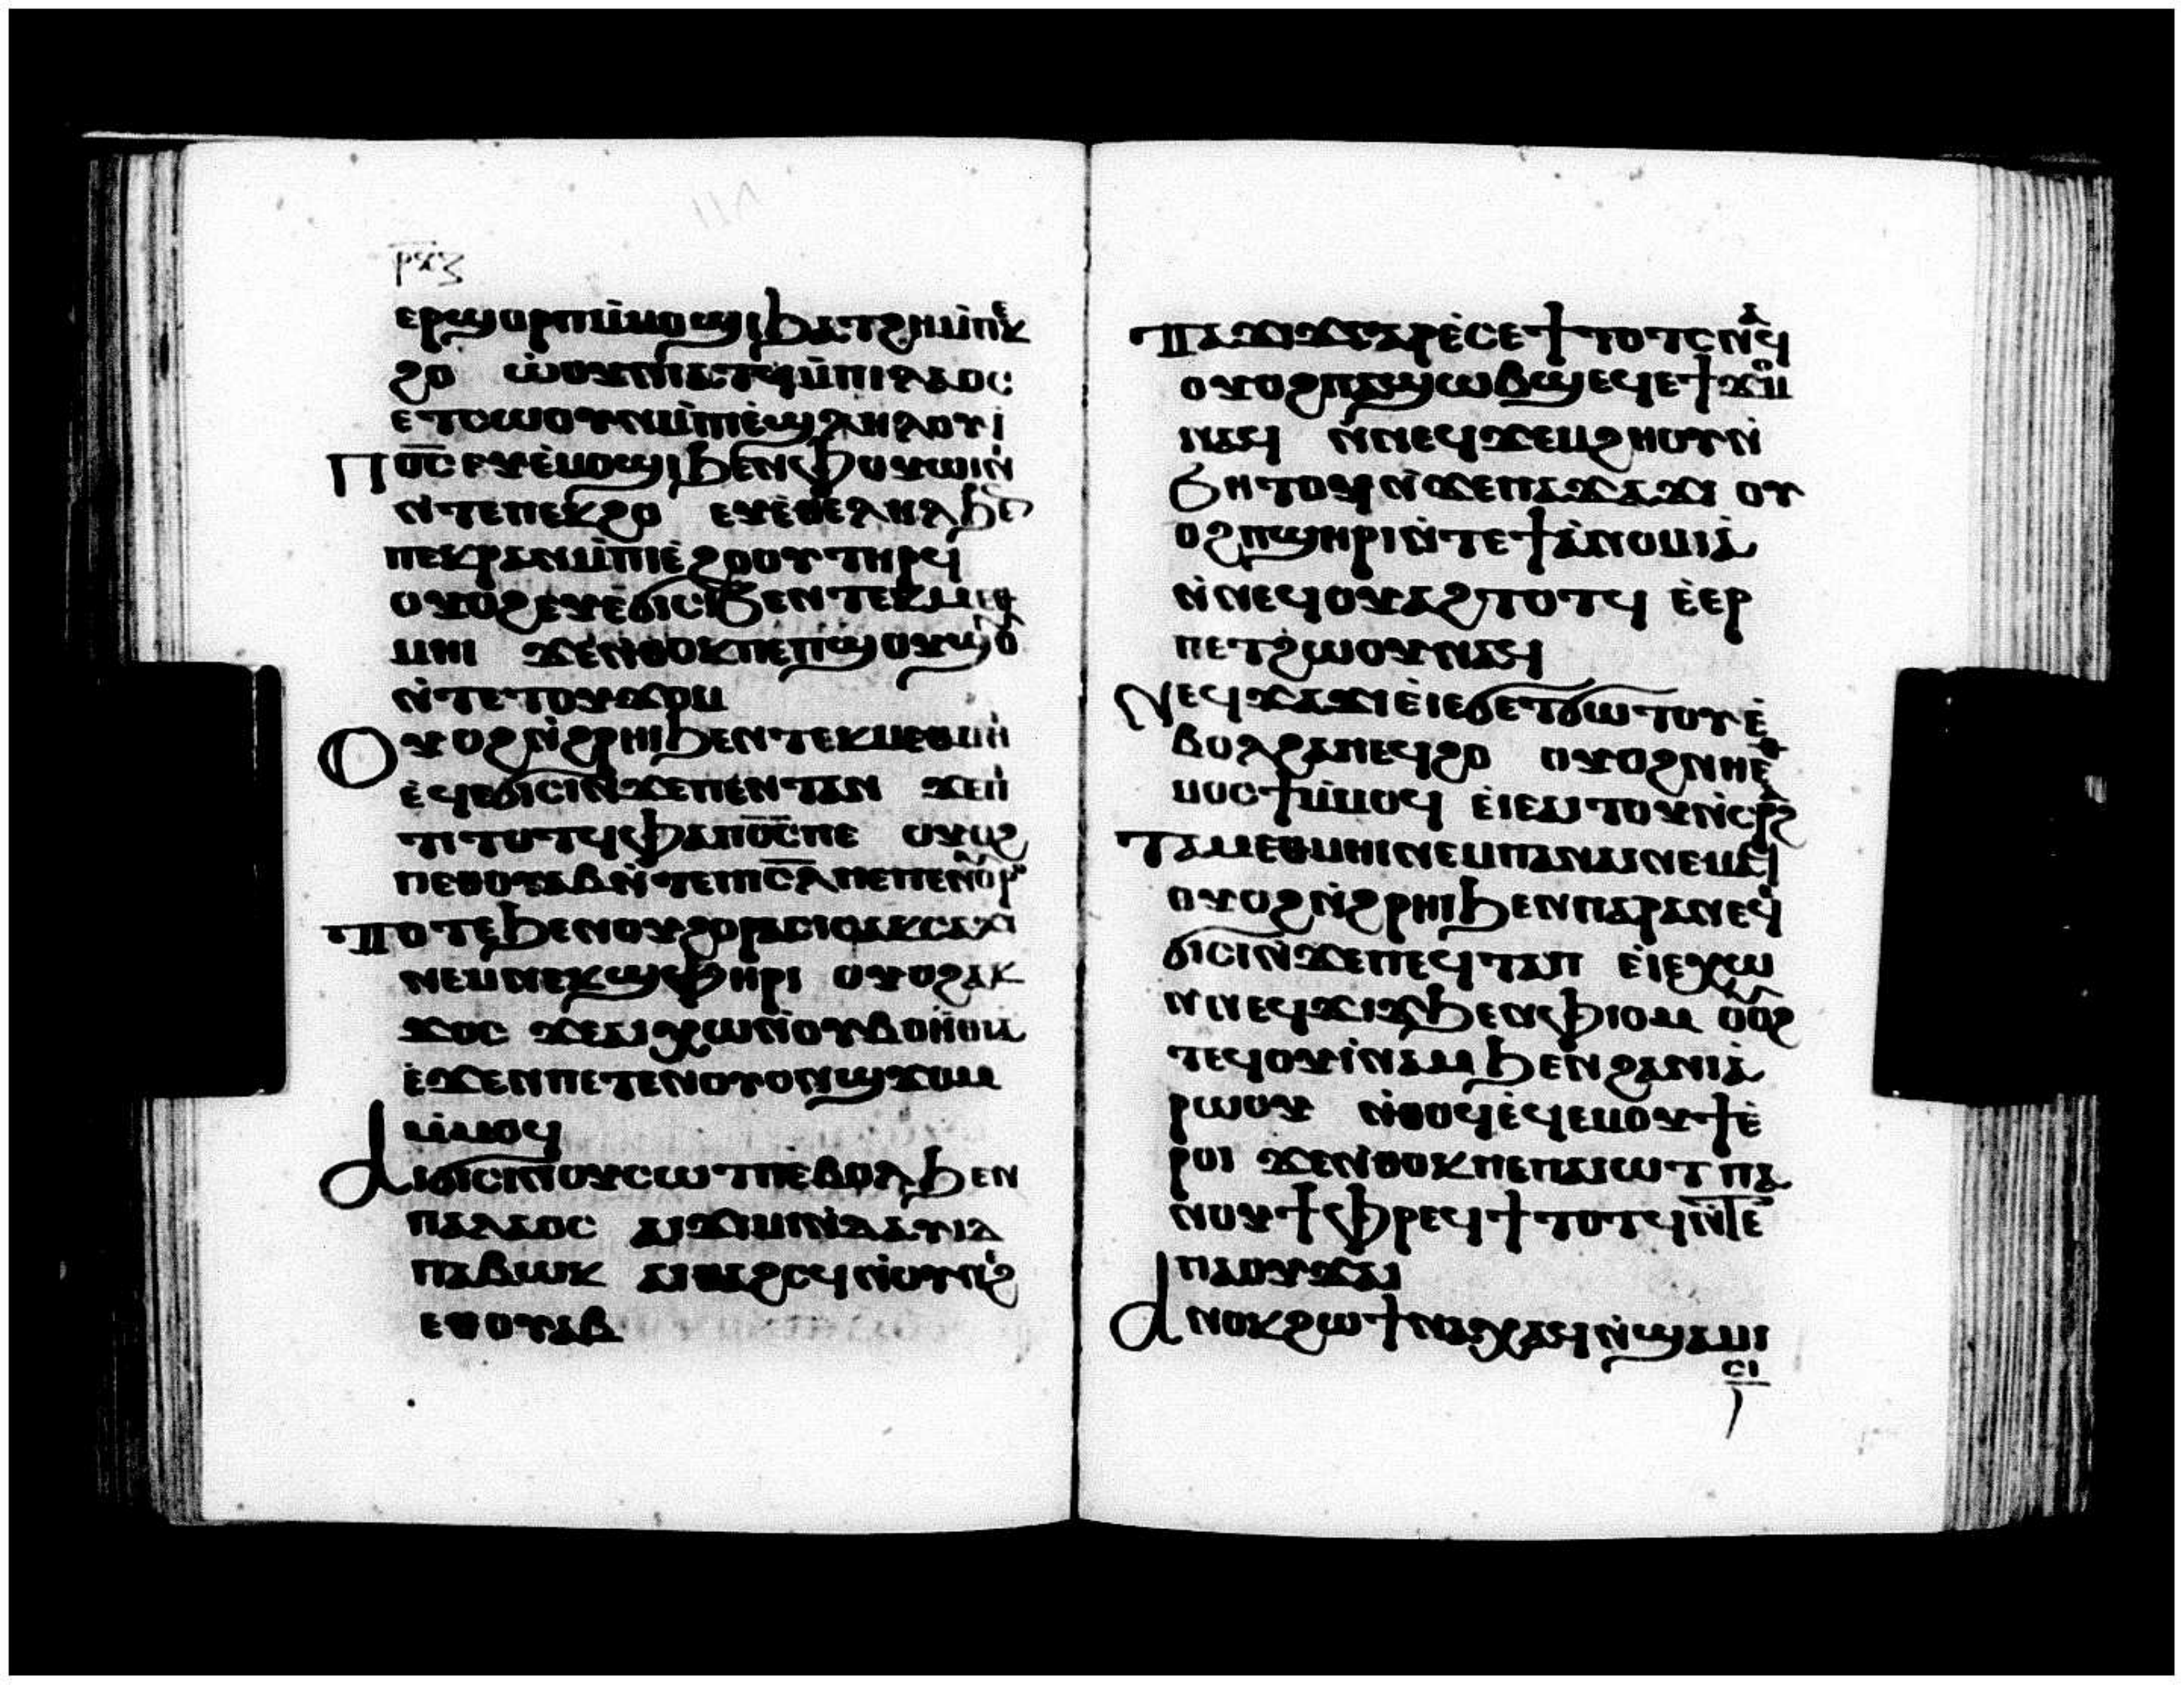 ⲣⲝⲍ
ⲉⲣϣⲟⲣⲡⲙ̀ⲙⲟϣⲓϧⲁⲧϩⲏⲙ̀ⲡⲉⲕ
ϩⲟ ⲱ̀ⲟⲩⲛⲓⲁⲧϥⲙ̀ⲡⲓⲗⲁⲟⲥ
ⲉⲧⲥⲱⲟⲩⲛⲙ̀ⲡⲓⲉ̀ϣⲗⲏⲗⲟⲩⲓ̀
Ⲡⲟ̅ⲥ̅ ⲉⲩⲉ̀ⲙⲟϣⲓϧⲉⲛⲫⲟⲩⲱⲓⲛ
ⲛ̀ⲧⲉⲡⲉⲕϩⲟ ⲉⲩⲉ̀ⲑⲉⲗⲏⲗϧⲉⲛ
ⲡⲉⲕⲣⲁⲛⲙ̀ⲡⲓⲉ̀ϩⲟⲟⲩⲧⲏⲣϥ
ⲟⲩⲟϩⲉⲩⲉ̀ϭⲓⲥⲓϧⲉⲛⲧⲉⲕⲙⲉⲑ
ⲙⲏⲓ ϫⲉⲛ̀ⲑⲟⲕⲡⲉⲡϣⲟⲩϣⲟⲩ
ⲛ̀ⲧⲉⲧⲟⲩϫⲟⲙ
Ⲟⲩⲟϩⲛ̀ϩⲣⲏⲓϧⲉⲛⲧⲉⲕⲙⲉⲑⲙⲏⲓ
ⲉ̀ϥⲉϭⲓⲥⲓⲛ̀ϫⲉⲡⲉⲛⲧⲁⲡ ϫⲉⲡⲓ
ϯⲧⲟⲧϥⲫⲁⲡⲟ̅ⲥ̅ⲡⲉ ⲟⲩⲟϩ
ⲡⲉⲑⲟⲩⲁⲃⲛ̀ⲧⲉⲡⲓⲥ̅ⲗ̅ⲡⲉⲡⲉⲛⲟⲩⲣⲟ
Ⲧⲟⲧⲉϧⲉⲛⲟⲩϩⲟⲣⲁⲥⲓⲥⲁⲕⲥⲁϫⲓ
ⲛⲉⲙⲛⲉⲕϣⲫⲏⲣⲓ ⲟⲩⲟϩⲁⲕ
ϫⲟⲥ ϫⲉⲁⲓⲭⲱⲛ̀ⲟⲩⲃⲟⲏ̀ⲑⲓⲁ
ⲉ̀ϫⲉⲛⲡⲉⲧⲉⲛⲟⲩⲟⲛϣϫⲟⲙ
ⲙ̀ⲙⲟϥ
Ⲁⲓϭⲓⲥⲓⲛ̀ⲟⲩⲥⲱⲧⲡⲉ̀ⲃⲟⲗϧⲉⲛ
ⲡⲁⲗⲁⲟⲥ ⲁⲓϫⲓⲙⲓⲛ̀ⲇⲁⲩⲓⲇ
ⲡⲁⲃⲱⲕ ⲁⲓⲑⲁϩⲥϥⲛ̀ⲟⲩⲛⲉϩ
ⲉⲑⲟⲩⲁⲃ
Ⲡⲁϫⲓϫⲅⲁⲣⲉ̀ⲥⲉϯⲧⲟⲧⲥⲛⲁϥ
ⲟⲩⲟϩⲡⲁϣⲱⲃϣⲉϥⲉϯϫⲟⲙ
ⲛⲁϥ ⲛ̀ⲛⲉϥϫⲉⲙϩⲏⲟⲩⲛ̀
ϧⲏⲧϥⲛ̀ϫⲉⲡⲁϫⲁϫⲓ ⲟⲩ
ⲟϩⲡϣⲏⲣⲓⲛ̀ⲧⲉϯⲁ̀ⲛⲟⲙⲓⲁ̀
ⲛ̀ⲛⲉϥⲟⲩⲁϩⲧⲟⲧϥ ⲉ̀ⲉⲣ
ⲡⲉⲧϩⲱⲟⲩⲛⲁϥ
Ⲛⲉϥϫⲁϫⲓⲉ̀ⲓⲉϭⲉⲧϭⲱⲧⲟⲩⲉ̀
ⲃⲟⲗϩⲁⲡⲉϥϩⲟ ⲟⲩⲟϩⲛⲏⲉⲑ
ⲙⲟⲥϯⲙ̀ⲙⲟϥ ⲉ̀ⲓⲉⲁⲓⲧⲟⲩⲛ̀ⲥⲁⲣϩ
Ⲧⲁⲙⲉⲑⲙⲏⲓⲛⲉⲙⲡⲁⲛⲁⲓⲛⲉⲙⲁϥ
ⲟⲩⲟϩⲛ̀ϩⲣⲏⲓϧⲉⲛⲡⲁⲣⲁⲛⲉϥ
ϭⲓⲥⲓⲛ̀ϫⲉⲡⲉϥⲧⲁⲡ ⲉ̀ⲓⲉⲭⲱ
ⲛⲛⲉϥϫⲓϫϧⲉⲛⲫⲓⲟⲙ ⲟⲩⲟϩ
ⲧⲉϥⲟⲩⲓ̀ⲛⲁⲙϧⲉⲛϩⲁⲛⲓⲁ̀
ⲣⲱⲟⲩ ⲛ̀ⲑⲟϥⲉ̀ϥⲉⲙⲟⲩϯⲉ̀
ⲣⲟⲓ ϫⲉⲛ̀ⲑⲟⲕⲡⲉⲡⲁⲓⲱⲧ ⲡⲁ
ⲛⲟⲩϯⲫⲣⲉϥϯⲧⲟⲧϥⲛ̀ⲧⲉ
ⲡⲁⲟⲩϫⲁⲓ
Ⲁⲛⲟⲕϩⲱϯⲛⲁⲭⲁϥⲛ̀ϣⲁⲙⲓ
ⲥⲓ